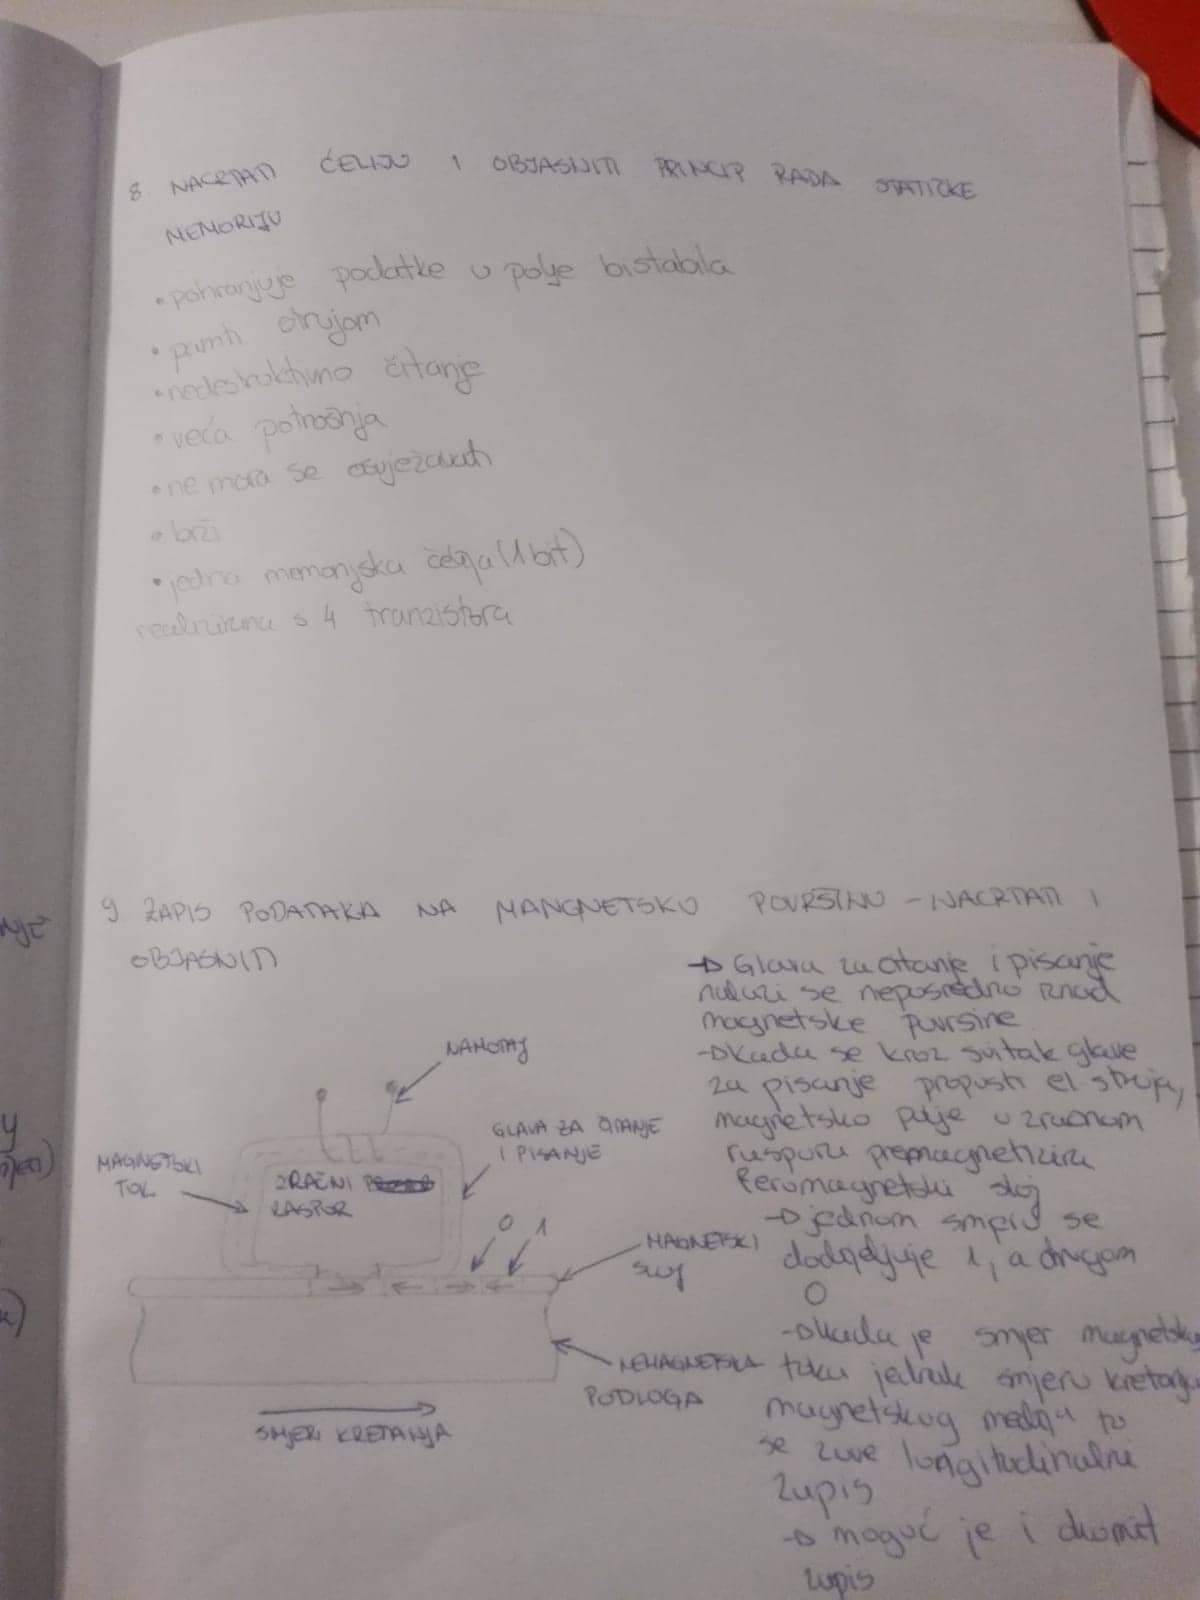 8. NACRTATI ĆELIJU I OBJASNITI PRINCIP RADA STATIČKE
MEMORIJU
• pohranjuje podatke u polje bistabila
• pamti strujom
• nedestruktivno čitanje
• veća potrošnja
• ne mora se osvježavati
• brži
• jedna memorijska ćelija (1 bit)
realizirana s 4 tranzistora
9 ZAPIS PODATAKA NA MANGNETSKU POVRŠINU - NACRTATI I
OBJASNITI
NAMOTAJ
GLAVA ZA ČITANJE
I PISANJE
MAGNETSKI
TOK
ZRAČNI
RASPOR
0 1
MAGNETSKI
SLOJ
NEMAGNETSKA
PODLOGA
SMJER KRETANJA
→ Glava za čitanje i pisanje
nalazi se neposredno iznad
magnetske površine
→ kada se kroz svitak glave
za pisanje propusti el struja,
magnetsko polje u zračnom
rasporu premagnetizira
feromagnetski sloj
→ jednom smjeru se
dodjeljuje 1, a drugom
0
→ kada je smjer magnetskog
toka jednak smjeru kretanja
magnetskog medija to
se zove longitudinalni
zapis
→ moguć je i okomit
zapis